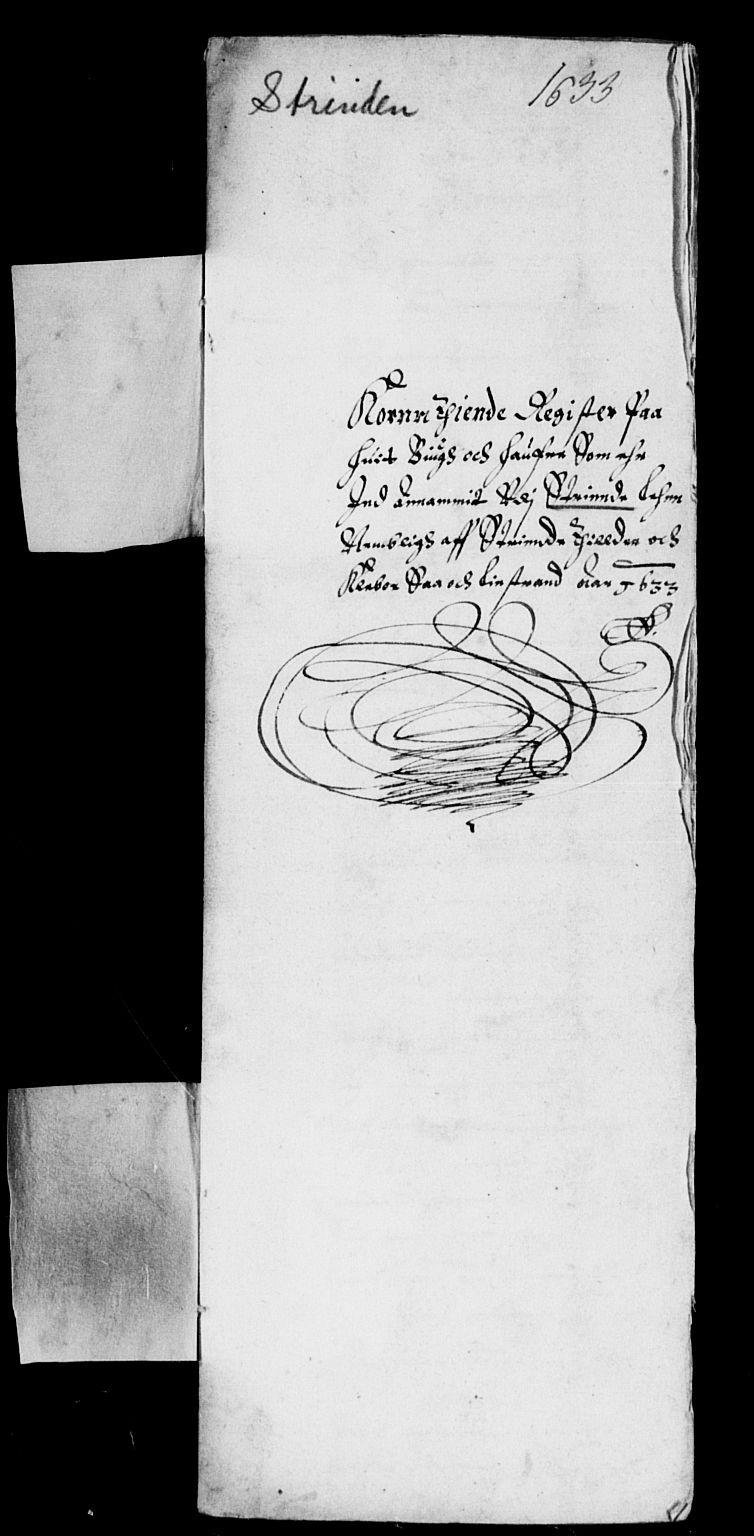 Strinden 1633
Kornn Thiende Register Paa
huis Biugh och haufre Som ehr
Ind Annammit Udj Striende Lehnn
Nembligh aff Striende Thilder och
Klebor Saa och Leinstrand Aar 1633